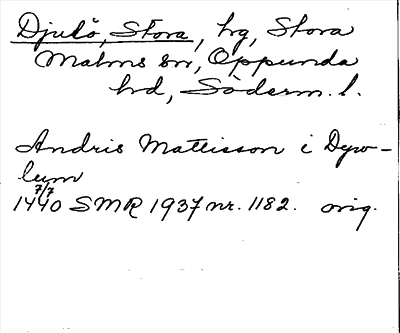 Djulö, Stora, hg, Stora
Malms sn, Oppunda
hd, Söderm. l.
Andris Mattisson i Dyw-
lum
7/7
1440 SMR 1937 nr. 1182. orig.